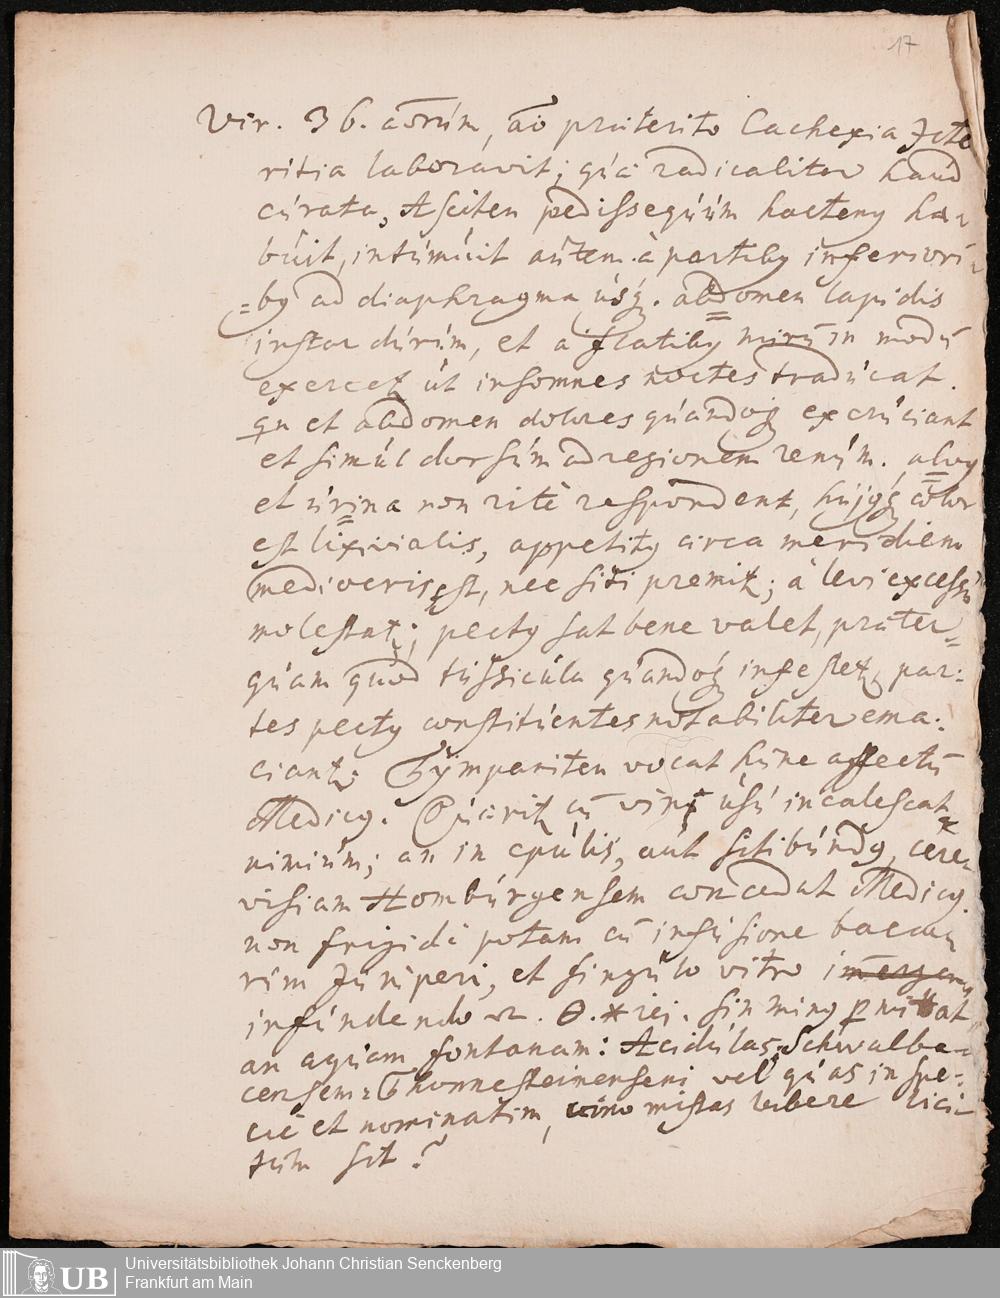 17
Vir. 36. aōrum, aō praterito Cachexia Icte
ritia laboravit; quà radicaliter haud
curata, Asciten pedissequum hacteny ha-
buit, intumuit autem à partiby inferiori
=by ad diaphragma usq. abdomen lapidis
instar durum, et a flatiby mirū in modū
exercet ut insomnes noctes traducat.
qu et abdomen dolores quandoq excruciant
et simul dorsum ad regionem renum. alvy
et urina non ritè respondent, hujoq color
est lixivialis, appetity circa meridiem
mediocris est, nec siti premit; à levi excessu
molestat; pecty sat bene valet, prater=
quam quod tussicula quandoq infestet, par:
tes pecty constituentes notabiliter ema:
ciant. Tympaniten vocat hunc affectū
Medicy. Quarit cū vini usu incalescat
nimium; an in epulis, aut sitibundy, cere
visiam Homburgensem concedat Medicy.
non frigidè potam cū infusione bacca
rum Juniperi, et singulo vitro
infundendo . Θ.*rei. sin miny pmittat
an aquam fontanam: Acidulas Schwalba-
censem: Thonnesteinensem vel quas in spe:
ciè et nominatim, vino mistas bibere lici
tum sit?
UB Universitätsbibliothek Johann Christian Senckenberg
Frankfurt am Main